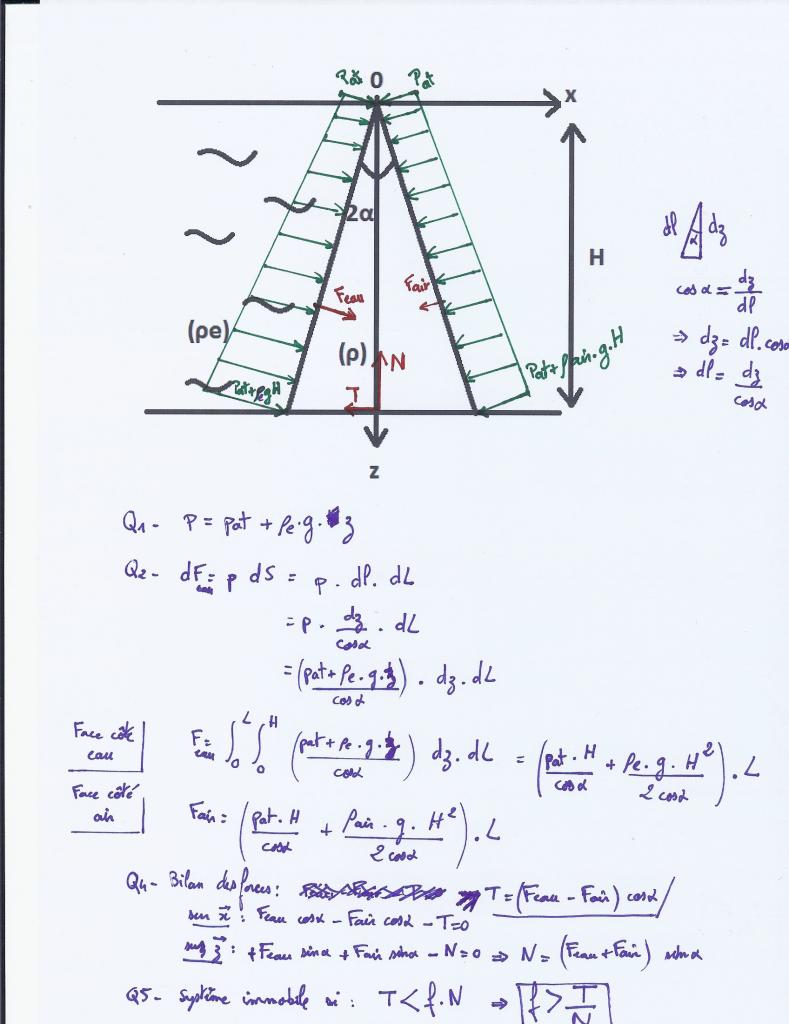 Pat 0 Pat
x
2α
H
dl α dz
cosα = dz/dl
⇒ dz = dl. cosα
⇒ dl = dz/cosα
Feau Fair
(ρe) (ρ) N
T
Pat+ρegH Pat+ρair.g.H
z
Q1- P = pat + ρe.g.z
Q2- dFeau = p dS = p . dl. dL
= p . dz/cosα . dL
= (pat + ρe.g.z)/cosα . dz.dL
Face côté eau
Feau = ∫0^L ∫0^H ((pat + ρe.g.z)/cosα) dz.dL = (pat.H/cosα + ρe.g.H²/2cosα).L
Face côté air
Fair = (pat.H/cosα + ρair.g.H²/2cosα).L
Q4- Bilan des forces: T = (Feau - Fair) cosα
sur x⃗ : Feau cosα - Fair cosα - T=0
sur z⃗ : +Feau sinα + Fair sinα - N=0 ⇒ N = (Feau+Fair) sinα
Q5- Système immobile si : T < f.N ⇒ f > T/N